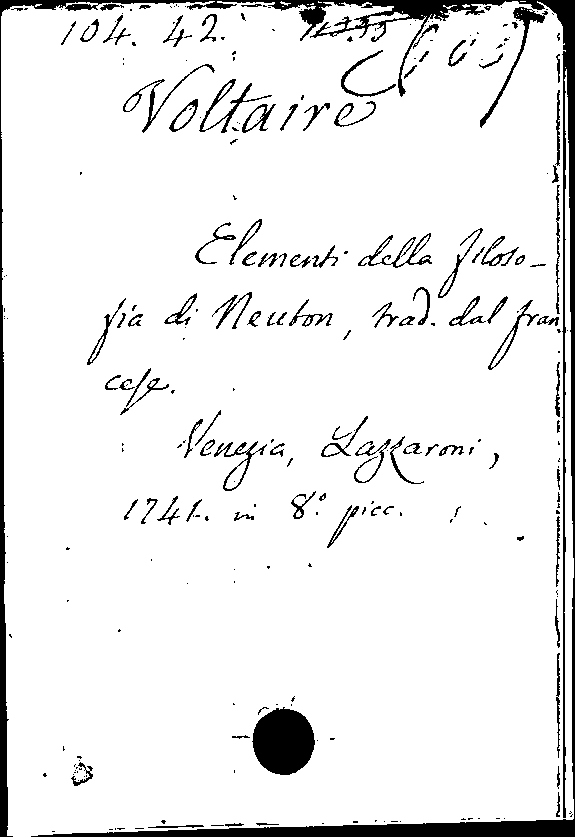 104. 42.
Voltaire
Elementi della filoso-
fia di Neuton, trad. dal fran
cese.
Venezia, Lazzaroni,
1741. in 8.° picc.